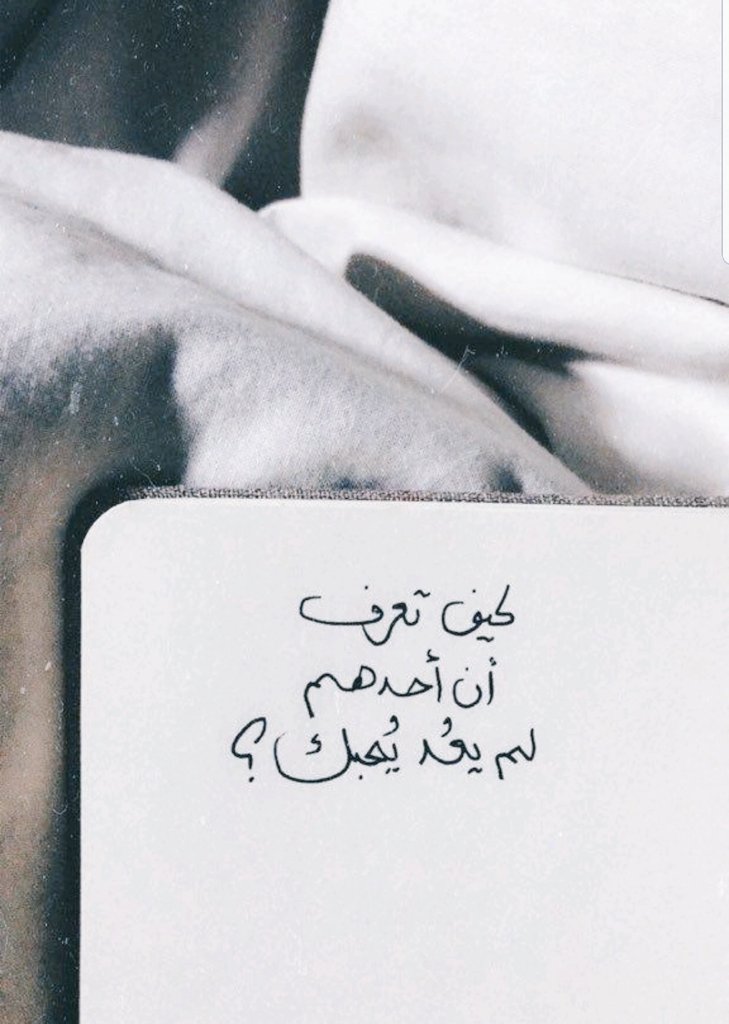 كيف تعرف
أن أحدهم
لم يعُد يُحبك ؟